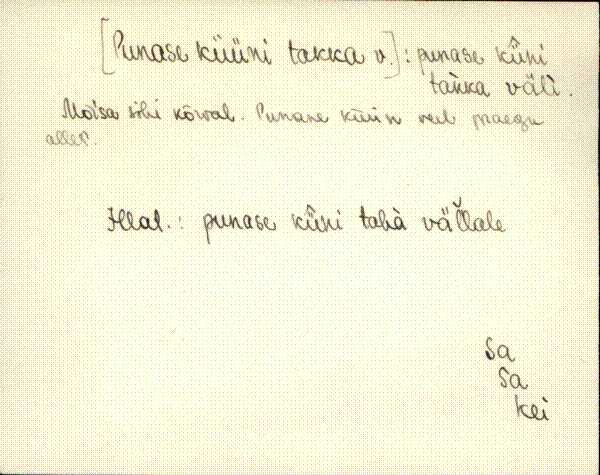 [Punase küüni takka v.]: punase kûni
takka väli.
Mõisa sihi kõrval. Punane küün veel praegu
alles.
Illal.: punase kûni takà vället
Sa
Sa
Kei